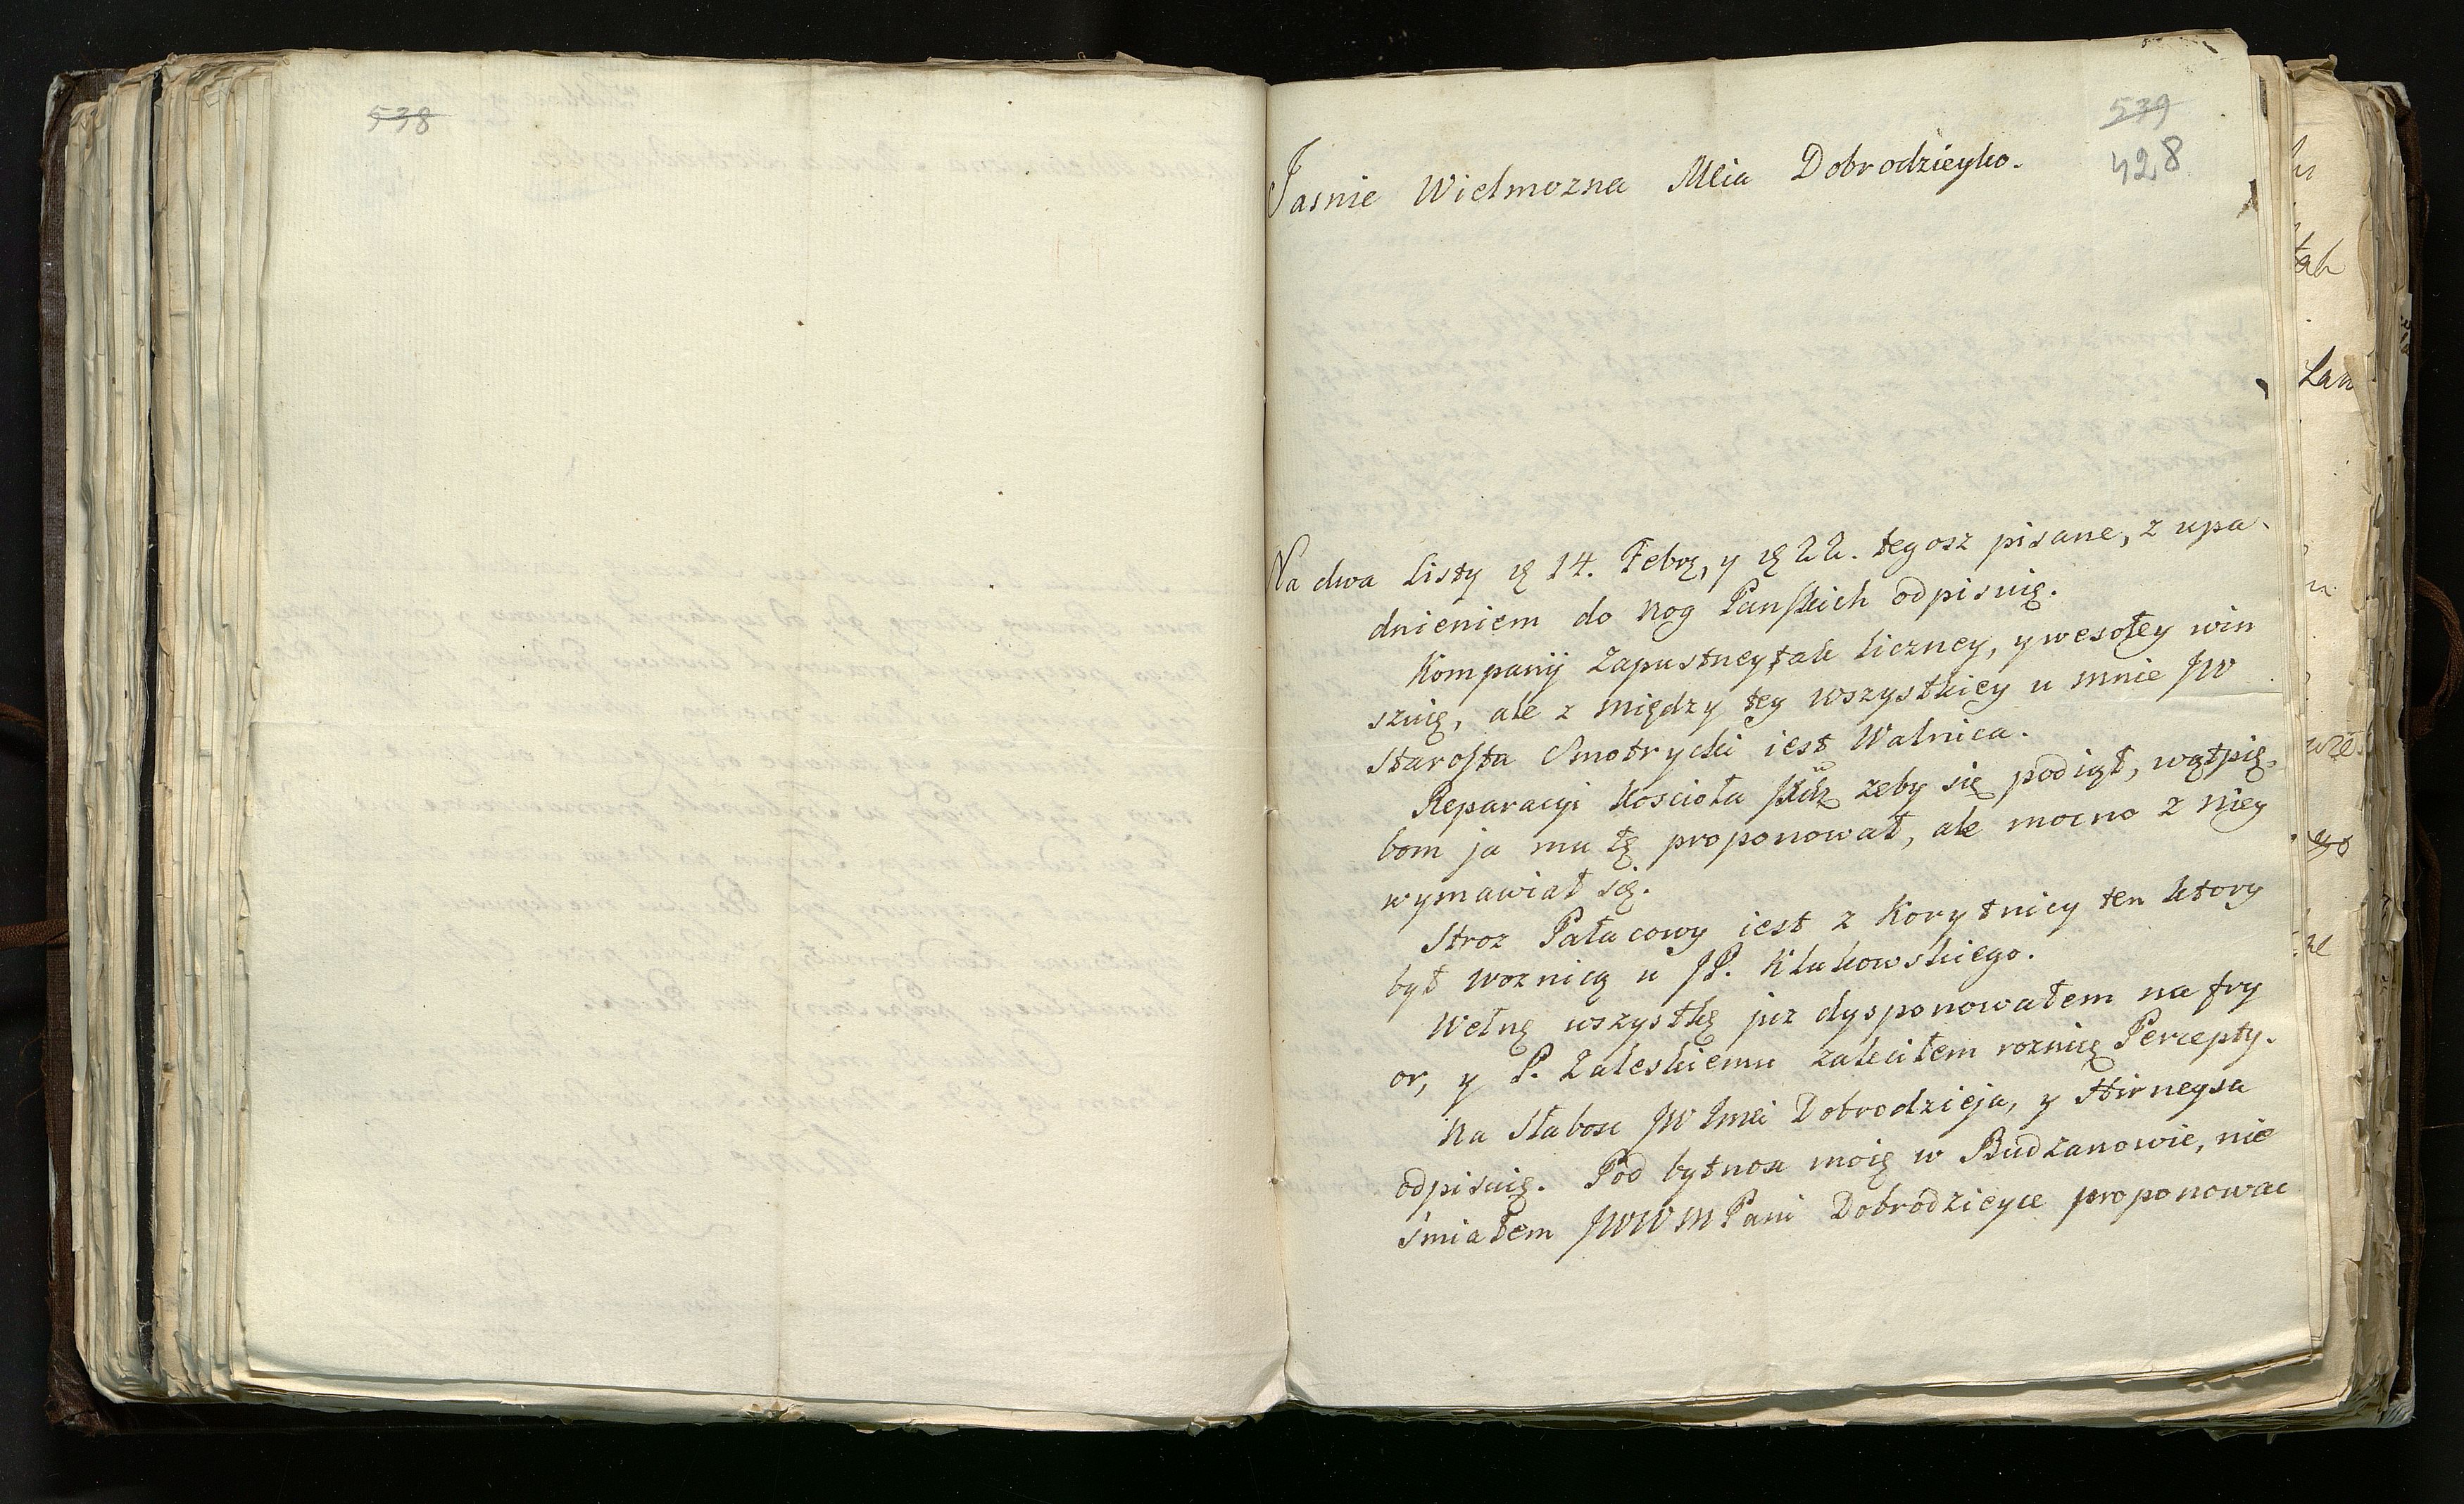 538
539
428
Jasnie Wielmozna Mcia Dobrodzieyko.
Na dwa Listy 14. Febr, y 22. tegosz pisane, z upa
dnieniem do nog Panskich odpisuię.
Kompanÿ Zapustney tak liczney, y wesołey win
szuię, ale z między tey wszystkiey u mnie JW
Starosta Smotrycki iest Walnica.
Reparacyi Koscioła zeby się podiął, wątpię,
bom ja mu tę proponował, ale mocno z niey
wymawiał się.
Stroz Pałacowy iest z Korytnicy ten ktory
był woznicą u JP. Klukowskiego.
Wełnę wszystkę juz dysponowałem na fry
or, y P. Zaleskiemu zaleciłem roznię Percepty.
Na Słabosc JW Jmci Dobrodzieja, y Hirneysa
odpisuię. Pod bytnosc moię w Budzanowie, nie
śmiałem JWWMPani Dobrodzieyce proponowac